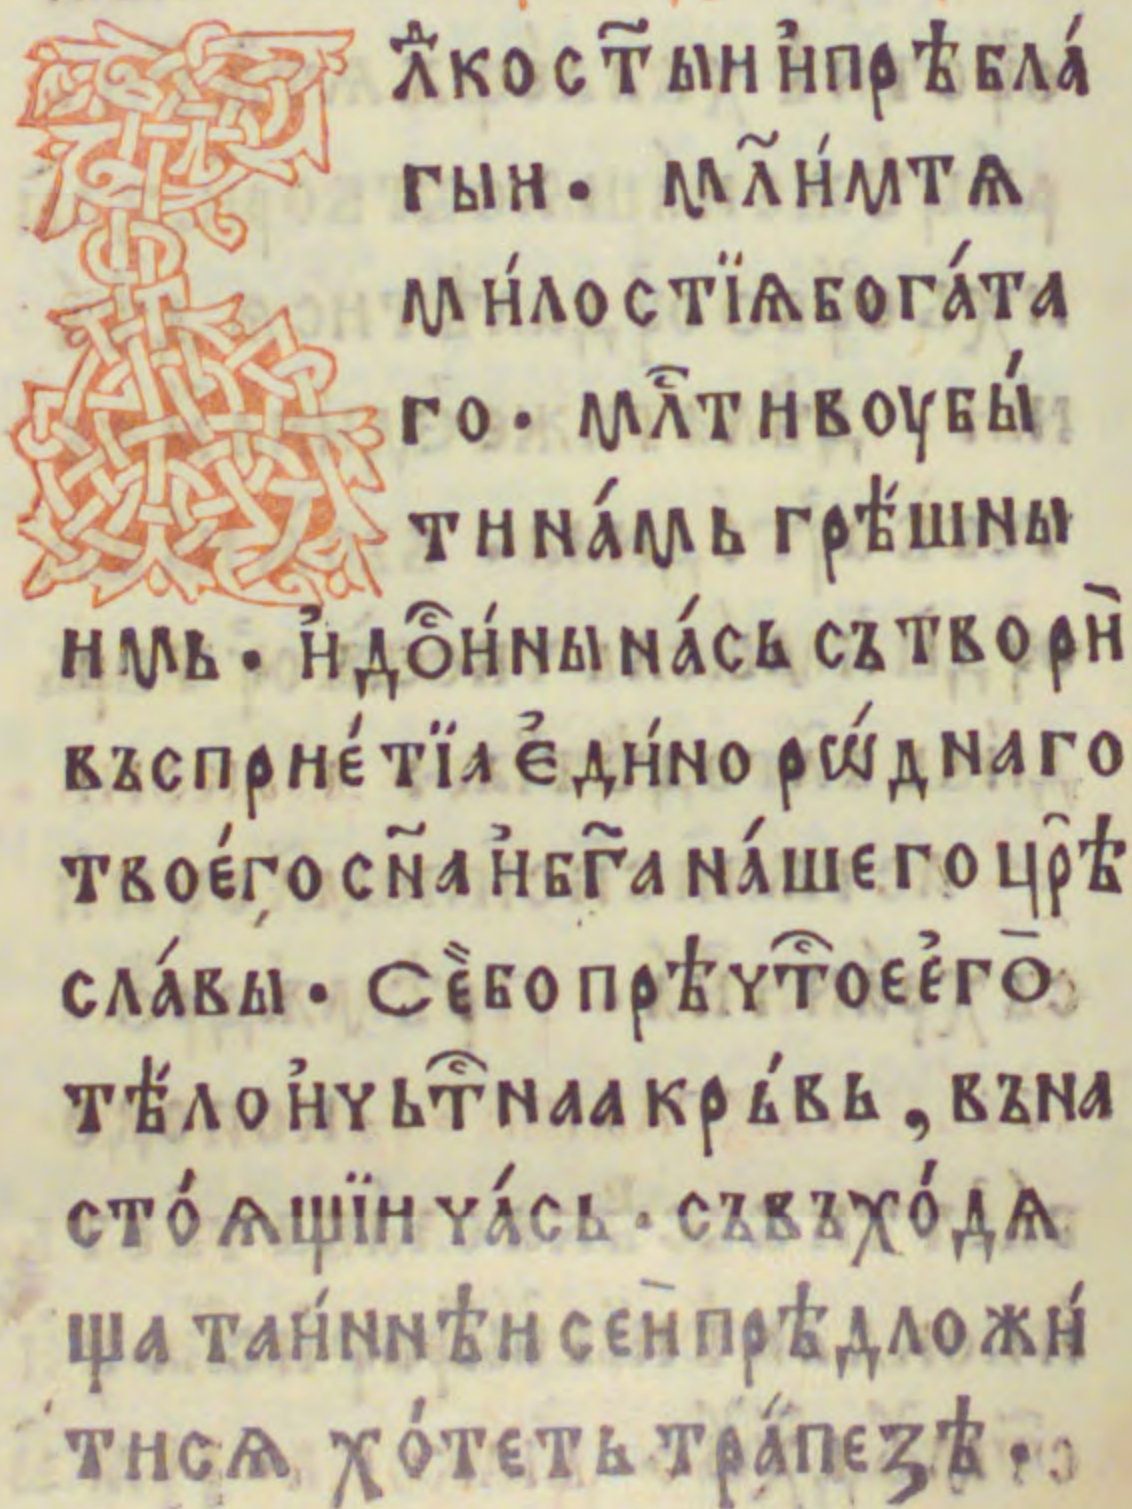 влⷣко ст҃ын и҆прѣбла́
гын · мл҃и́мтѧ
ми́лостїѧбога́та
го · мл҇тнвоубы́
тина́мь грѣ́шны
нмь · и҆до҇и́нына́сь сътворѝ
въспрне́тїа є҆ди́норѡ́днаго
твоє́госн҃а и҆бг҃а на́шего цр҃ѣ
сла́вы · Сѐбопрѣчт҇оеє҆го
тѣ́лои҆чьт҇наакрь́вь , въна
сто́ѧщїнча́сь · съвъхо́дѧ
ща таи́ннѣн сен прѣдложи́
тисѧ хо́теть тра́пезѣ ·